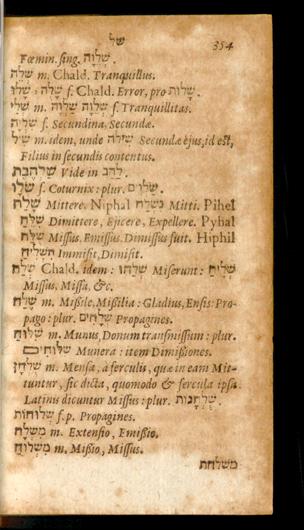 של
354
Fœmin. sing. שְׁלֵוָה.
שְׁלֵה m. Chald. Tranquillus.
שָׁלָה : שָׁלוּ f. Chald. Error, pro שָׁלוּת.
שְׁלִי m. שַׁלְוָה f. Tranquillitas.
שִׁלְיָה f. Secundina, Secundæ.
שִׁיל m. idem, unde שִׁילֹה Secundæ ejus, id est,
Filius in secundis contentus.
שַׁלְהֶבֶת Vide in לָהַב.
שְׂלָו f. Coturnix : plur. שַׂלְוִים.
שָׁלַח Mittere. Niphal נִשְׁלַח Mitti. Pihel
שִׁלַּח Dimittere, Ejicere, Expellere. Pyhal
שֻׁלַּח Missus, Emissus, Dimissus fuit. Hiphil
הִשְׁלִיחַ Immisit, Dimisit.
שְׁלַח Chald. idem : שְׁלַחוּ Miserunt : שְׁלִיחַ
Missus, Missa, &c.
שֶׁלַח m. Missile, Missilia : Gladius, Ensis : Pro-
pago : plur. שְׁלָחִים Propagines.
שִׁלּוּחַ m. Munus, Donum transmissum : plur.
שִׁלּוּחִים Munera : item Dimissiones.
שֻׁלְחָן m. Mensa, à ferculis, quæ in eam Mit-
tuntur, sic dicta, quomodo & fercula ipsa
Latinis dicuntur Missus : plur. שֻׁלְחָנוֹת.
שְׁלוּחוֹת f. p. Propagines.
מִשְׁלָח m. Extensio, Emissio.
מִשְׁלוֹחַ m. Missio, Missus.
משלחת